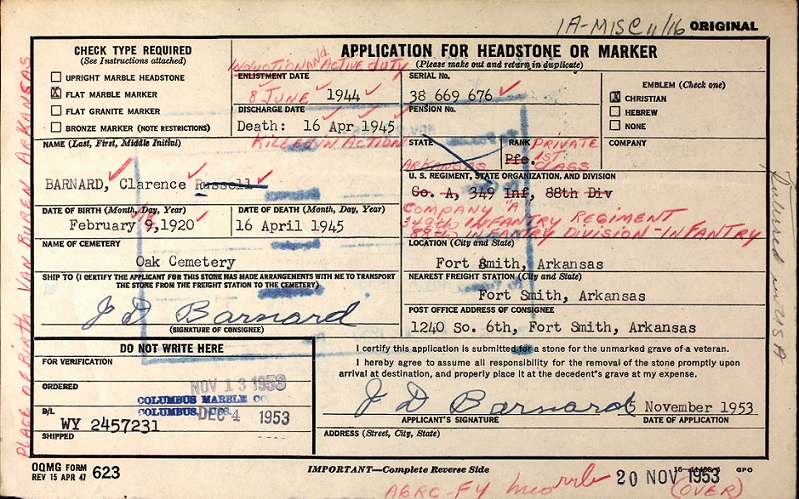 1A-MISC 11/16 ORIGINAL
CHECK TYPE REQUIRED
(See Instructions attached)
UPRIGHT MARBLE HEADSTONE
X FLAT MARBLE MARKER
FLAT GRANITE MARKER
BRONZE MARKER (NOTE RESTRICTIONS)
APPLICATION FOR HEADSTONE OR MARKER
(Please make out and return in duplicate)
INDUCTION AND ACTIVE DUTY
ENLISTMENT DATE
8 JUNE 1944
SERIAL No.
38 669 676
DISCHARGE DATE
Death: 16 Apr 1945
KILLED IN ACTION
PENSION No.
EMBLEM (Check one)
X CHRISTIAN
HEBREW
NONE
NAME (Last, First, Middle Initial)
BARNARD, Clarence Russell
STATE
ARKANSAS
RANK
Pfc.
PRIVATE
1ST
CLASS
COMPANY
U. S. REGIMENT, STATE ORGANIZATION, AND DIVISION
Co. A, 349 Inf, 88th Div
COMPANY "A"
349th INFANTRY REGIMENT
88th INFANTRY DIVISION-INFANTRY
DATE OF BIRTH (Month, Day, Year)
February 9, 1920
DATE OF DEATH (Month, Day, Year)
16 April 1945
NAME OF CEMETERY
Oak Cemetery
LOCATION (City and State)
Fort Smith, Arkansas
SHIP TO (I CERTIFY THE APPLICANT FOR THIS STONE HAS MADE ARRANGEMENTS WITH ME TO TRANSPORT
THE STONE FROM THE FREIGHT STATION TO THE CEMETERY)
J D Barnard
(SIGNATURE OF CONSIGNEE)
NEAREST FREIGHT STATION (City and State)
Fort Smith, Arkansas
POST OFFICE ADDRESS OF CONSIGNEE
1240 So. 6th, Fort Smith, Arkansas
DO NOT WRITE HERE
FOR VERIFICATION
NOV 13 1953
ORDERED
COLUMBUS MARBLE
COLUMBUS,
DEC 4 1953
B/L
WY 2457231
SHIPPED
I certify this application is submitted for a stone for the unmarked grave of a veteran.
I hereby agree to assume all responsibility for the removal of the stone promptly upon
arrival at destination, and properly place it at the decedent's grave at my expense.
J D Barnard 5 November 1953
APPLICANT'S SIGNATURE DATE OF APPLICATION
ADDRESS (Street, City, State)
OQMG FORM
REV 15 APR 47 623
IMPORTANT—Complete Reverse Side
GPO
AGRC-FY
20 NOV 1953
(OVER)
PLACE OF BIRTH VAN BUREN ARKANSAS
Interred in USA